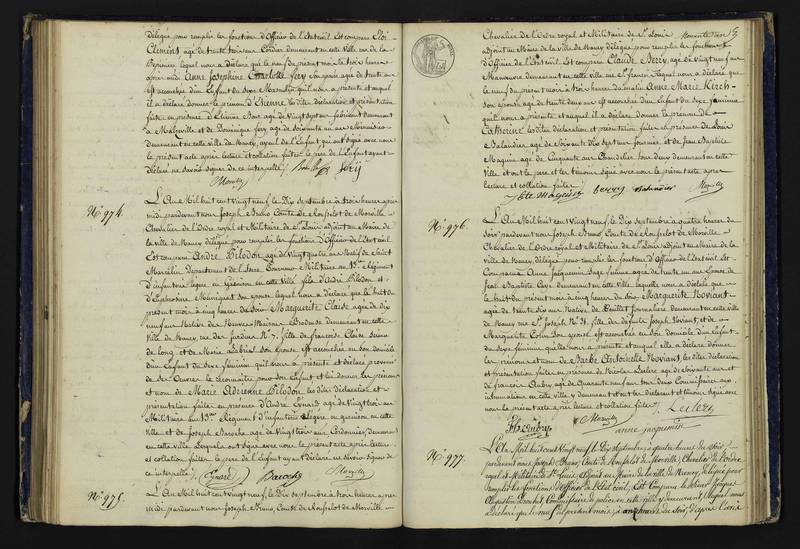 délégué pour remplir les fonctions d'Officier de l'Etat civil. Est comparu Eloi
Clement, agé de trente trois ans, Cordier demeurant en cette Ville rue de la
Pepiniere lequel nous a déclaré que le neuf du présent mois à trois heures
après midi Anne Josephine Charlotte Fery son épouse agée de trente ans
est accouchée d'un Enfant du Sexe Masculin qu'il nous a présenté et auquel
il a déclaré donner le prénom d'Etienne les dites déclaration et présentation
faites en présence d'Etienne agé de vingt sept ans fabricant demeurant
à Maleville et de Dominique Fery agé de Soixante un ans Menuisier
demeurant en cette ville de Nancy, ayeul de l'Enfant qui ont signé avec nous
le présent acte après lecture et collation faites, le père de l'Enfant ayant
déclaré ne savoir signer de ce interpellé
Fery
N.º 974.
L'An Mil huit cent Vingt neuf, le Dix Septembre à trois heures après
midi, pardevant nous Joseph Bruno Comte de Rouselot de Morville
Chevalier de l'Ordre royal et Militaire de St. Louis adjoint au Maire de
la ville de Nancy délégué pour remplir les fonctions d'Officier de l'Etat civil
Est comparu André Pilodon agé de Vingt quatre ans Natif de
Marcelin Departement de l'Isere, Militaire au 15me Régiment
d'infanterie légère en garnison en cette Ville fils d'André Pilodon et
d'Euphrosine son épouse lequel nous a déclaré que le huit du
présent mois à cinq heures du Soir Marguerite Claise agée de dix
neuf ans Native de Brodeuse demeurant en cette
Ville de Nancy, rue des Jardins N.º 7, fille de François Claise
de long, et de Marie son épouse est accouchée en son domicile
d'un Enfant du Sexe féminin qu'il nous a présenté et déclaré provenir
de ses Œuvres le reconnaitre pour son Enfant et lui donner les prénoms
et nom de Marie Adrienne Pilodon les dites déclaration et
présentation faites en présence d'André Eynard agé de vingt trois ans
Militaire au 15me Régiment d'infanterie légère en garnison en cette
Ville et de Joseph Baroche agé de Vingt trois ans, Cordonnier, demeurant
en cette Ville, Lesquels ont signé avec nous le présent acte après lecture
et collation faites, le père de l'Enfant ayant déclaré ne savoir signer de
ce interpellé
Eynard Baroche Morville
N.º 975.
L'An Mil huit cent vingt neuf, le Dix Septembre à trois heures après
midi pardevant nous Joseph Bruno, Comte de Rouselot de Morville
Chevalier de l'Ordre royal et Militaire de St. Louis
adjoint au Maire de la ville de Nancy, délégué pour remplir les fonctions
d'Officier de l'Etat civil. Est comparu Claude Serry, agé de Vingt neuf ans
Manœuvre demeurant en cette ville rue St. François lequel nous a déclaré que
le neuf du présent mois à trois heures du matin Anne Marie Kirch
son épouse agée de trente deux ans est accouchée d'un Enfant du Sexe féminin
qu'il nous a présenté et auquel il a déclaré donner le prénom de
Catherine les dites déclaration et présentation faites en présence de Louis
Balandier agé de Soixante Dix Sept ans journalier et de Jean Baptiste
Maguin agé de Cinquante ans Chandelier tous deux demeurant en cette
Ville et ont le père et les témoins signé avec nous le présent acte après
lecture et collation faites
Jbte Maguin Serry Balandier Morville
N.º 976.
L'An Mil huit cent Vingt neuf, le Dix Septembre à quatre heures du
Soir pardevant nous Joseph Bruno Comte de Rouselot de Morville
Chevalier de l'Ordre royal et Militaire de St. Louis adjoint au Maire de la
ville de Nancy, délégué pour remplir les fonctions d'Officier de l'Etat civil. Est
Comparue Anne Jacquemin Sage femme agée de trente un ans Epouse de
Jean Baptiste demeurant en cette Ville laquelle nous a déclaré que
le huit du présent mois à cinq heures du Soir Marguerite Noviant
agée de trente Six ans Native de journalière demeurant en cette ville
de Nancy rue St. Joseph N.º 31, fille des défunts Joseph Noviant, et de
Marguerite Colin son épouse est accouchée en son domicile d'un Enfant
du Sexe féminin qu'elle nous a présenté et auquel elle a déclaré donner
les prénoms et nom de Barbe Antoinette Noviant, les dites déclaration
et présentation faites en présence de Nicolas Leclerc agé de Soixante ans et
de François Aubry agé de Quarante neuf ans tous deux Commissaires aux
inhumations en cette Ville y demeurant et ont la déclarante et témoins signé avec
nous le présent acte après lecture et collation faites
Leclerc
Aubry Morville
anne jacquemin
N.º 977.
L'An Mil huit cent Vingt neuf, le Dix Septembre, à quatre heures du Soir,
pardevant nous Joseph Bruno, Comte de Rouselot de Morville, Chevalier de l'Ordre
royal et Militaire de St. Louis adjoint au Maire de la ville de Nancy, délégué pour
remplir les fonctions d'Officier de l'Etat civil, Est Comparu le Sieur
Augustin Commissaire de police en cette ville y demeurant, lequel nous a
déclaré que le neuf du présent mois, à onze heures du Soir, d'après l'avis